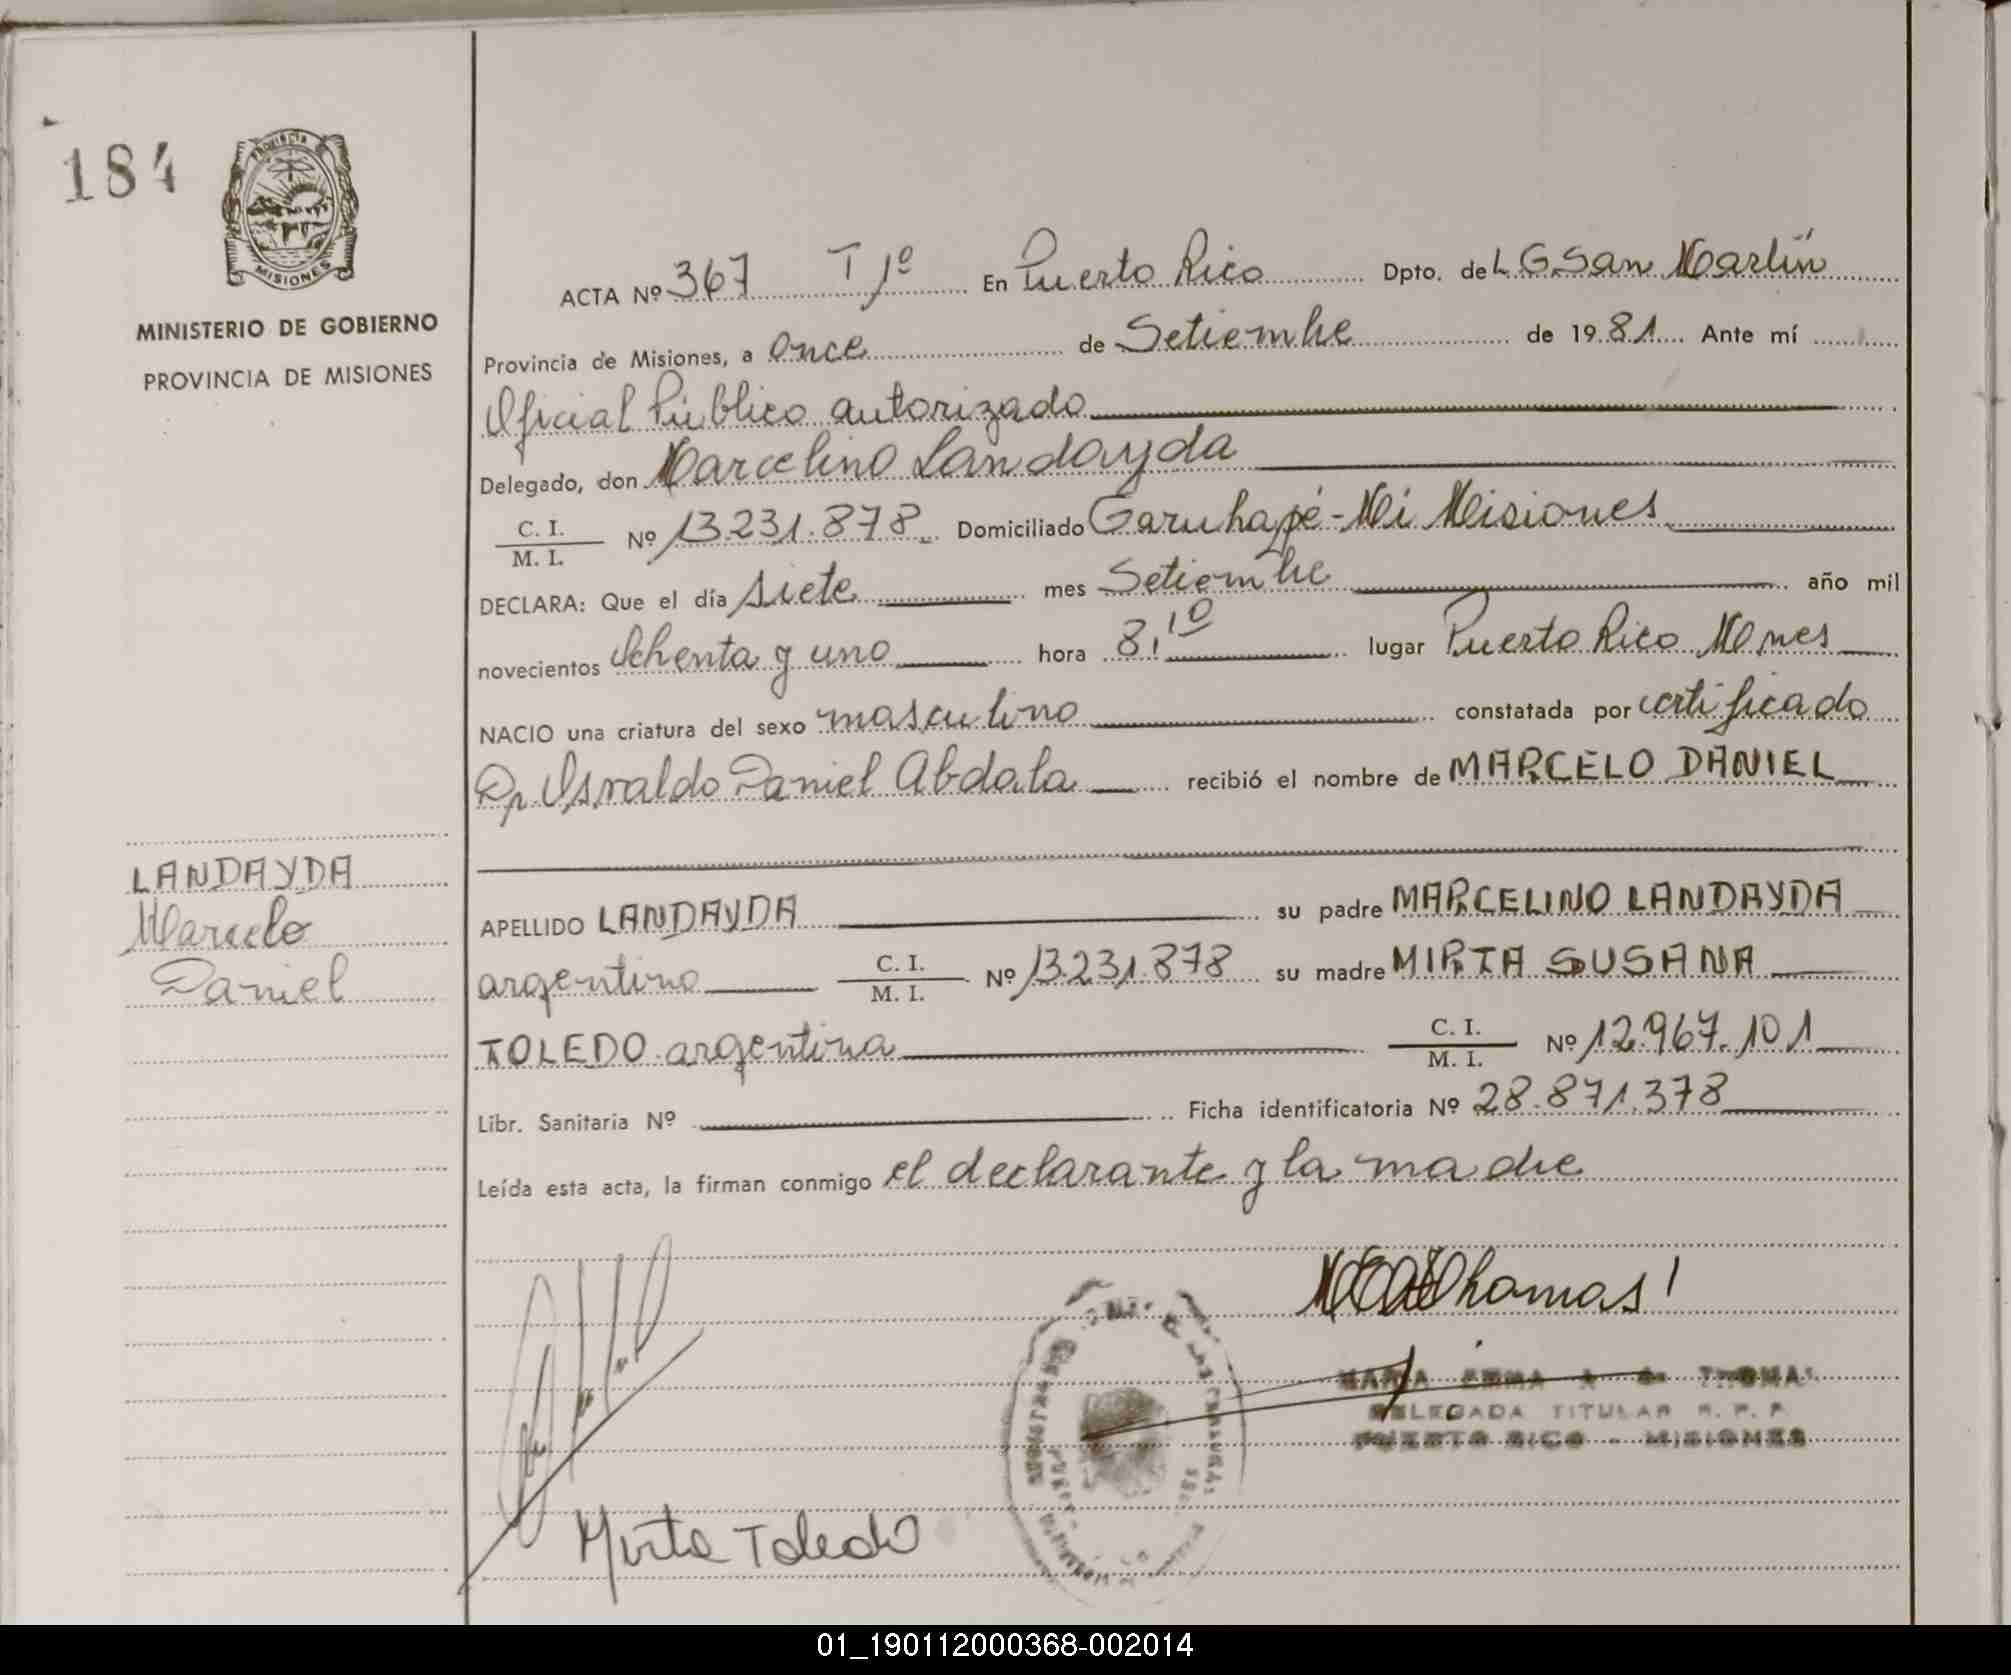 184
PROVINCIA
MISIONES
MINISTERIO DE GOBIERNO
PROVINCIA DE MISIONES
ACTA Nº 367 T 1º En Puerto Rico Dpto. de L G. San Martín
Provincia de Misiones, a once de Setiembre de 1981 Ante mí
Oficial Público autorizado
Delegado, don Marcelino Landayda
C. I.
M. I.
Nº 13.231.878 Domiciliado Garuhapé-Mi Misiones
DECLARA: Que el día siete mes Setiembre año mil
novecientos Ochenta y uno hora 8,10 lugar Puerto Rico Mnes
NACIO una criatura del sexo masculino constatada por certificado
Dr. Osvaldo Daniel Abdala recibió el nombre de MARCELO DANIEL
LANDAYDA
Marcelo
Daniel
APELLIDO LANDAYDA su padre MARCELINO LANDAYDA
argentino C. I. M. I. Nº 13.231.878 su madre MIRTA SUSANA
TOLEDO argentina C. I. M. I. Nº 12.967.101
Libr. Sanitaria Nº Ficha identificatoria Nº 28.871.378
Leída esta acta, la firman conmigo el declarante y la madre
Thomas
MARIA EMMA A de THOMAS
DELEGADA TITULAR R. P. P.
PUERTO RICO - MISIONES
Mirta Toledo
01_190112000368-002014